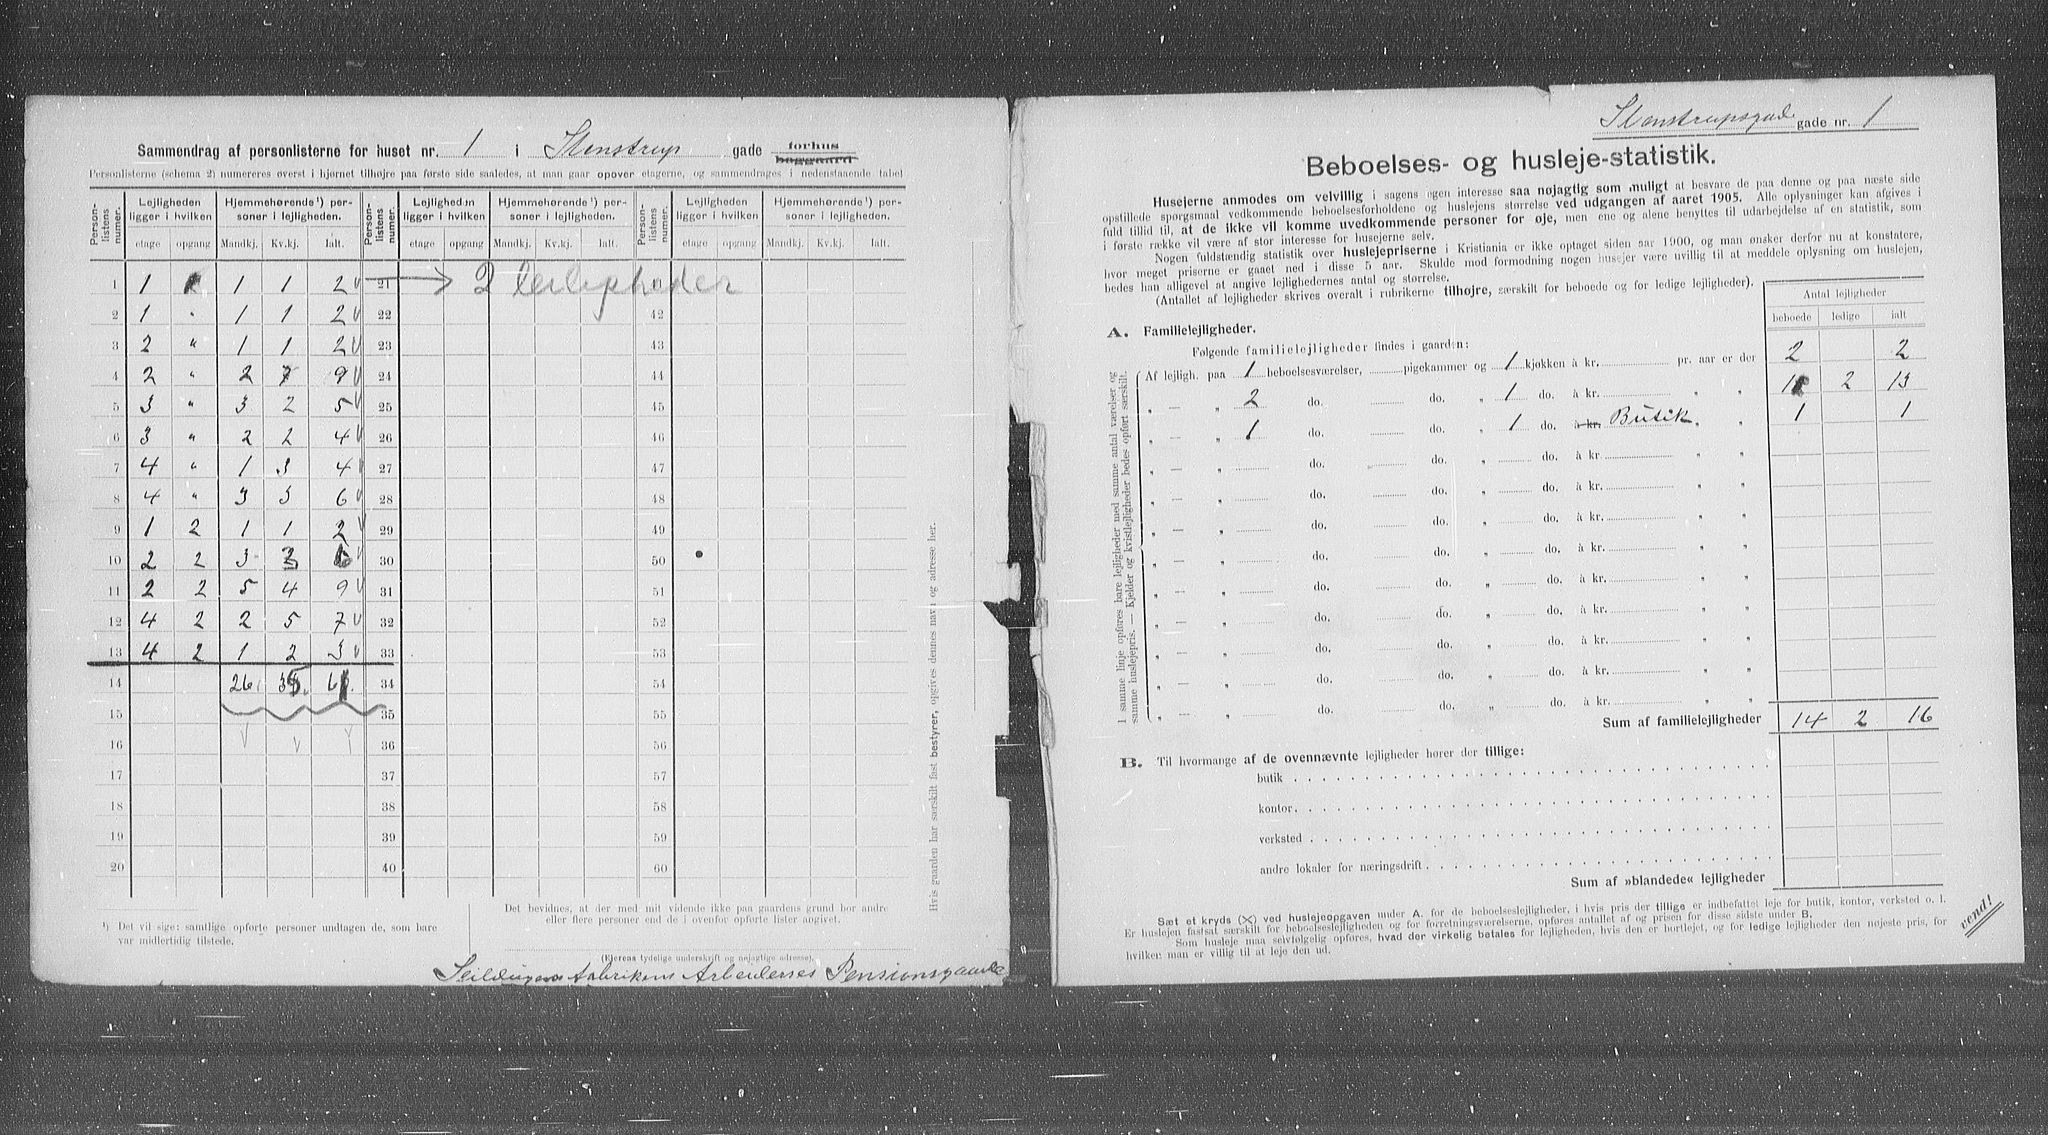 Sammendrag af personlisterne for huset nr. 1 i Stenstrup gade forhus baggaard
Personlisterne (schema 2) numereres øverst i hjørnet tilhøjre paa første side saaledes, at man gaar opover etagerne, og sammendrages i nedenstaaende tabel
Person-listens nummer. Lejligheden ligger i hvilken Hjemmehørende¹) personer i lejligheden. Person-listens nummer. Lejligheden ligger i hvilken Hjemmehørende¹) personer i lejligheden. Person-listens nummer. Lejligheden ligger i hvilken Hjemmehørende¹) personer i lejligheden.
etage opgang Mandkj. Kv.kj. Ialt. etage opgang Mandkj. Kv.kj. Ialt. etage opgang Mandkj. Kv.kj. Ialt.
1 1 1 1 2 21 2 leiligheder
2 1 " 1 1 2 22 42
3 2 " 1 1 2 23 43
4 2 " 2 7 9 24 44
5 3 " 3 2 5 25 45
6 3 " 2 2 4 26 46
7 4 " 1 3 4 27 47
8 4 " 3 3 6 28 48
9 1 2 1 1 2 29 49
10 2 2 3 3 6 30 50
11 2 2 5 4 9 31 51
12 4 2 2 5 7 32 52
13 4 2 1 2 3 33 53
14 26 35 61 34 54
15 35 55
16 36 56
17 37 57
18 38 58
19 39 59
20 40 60
Hvis gaarden har særskilt fast bestyrer, opgives dennes navn og adresse her.
¹) Det vil sige: samtlige opførte personer undtagen de, som bare var midlertidig tilstede.
Det bevidnes, at der med mit vidende ikke paa gaardens grund bor andre
eller flere personer end de i ovenfor opførte lister angivet.
(Ejerens tydelige underskrift og nøjagtige adresse).
Seildugs Fabrikens Arbeideres Pensionsgaard
Stenstrupsgade gade nr. 1
Beboelses- og husleje-statistik.
Husejerne anmodes om velvillig i sagens egen interesse saa nøjagtig som muligt at besvare de paa denne og paa næste side
opstillede spørgsmaal vedkommende beboelsesforholdene og huslejens størrelse ved udgangen af aaret 1905. Alle oplysninger kan afgives i
fuld tillid til, at de ikke vil komme uvedkommende personer for øje, men ene og alene benyttes til udarbejdelse af en statistik, som
i første række vil være af stor interesse for husejerne selv.
Nogen fuldstændig statistik over huslejepriserne i Kristiania er ikke optaget siden aar 1900, og man ønsker derfor nu at konstatere,
hvor meget priserne er gaaet ned i disse 5 aar. Skulde mod formodning nogen husejer være uvillig til at meddele oplysning om huslejen,
bedes han alligevel at angive lejlighedernes antal og størrelse.
(Antallet af lejligheder skrives overalt i rubrikerne tilhøjre, særskilt for beboede og for ledige lejligheder).
Antal lejligheder
beboede ledige ialt
A. Familielejligheder.
Følgende familielejligheder findes i gaarden:
I samme linje opføres bare lejligheder med samme antal værelser og samme huslejepris. — Kjelder og kvistlejligheder bedes opført særskilt.
Af lejligh. paa 1 beboelsesværelser, pigekammer og 1 kjøkken à kr. pr. aar er der 2 2
" — " 2 do. do. " 1 do. à kr. " " 11 2 13
" — " 1 do. do. " 1 do. à kr. Butik " " 1 1
" — " do. do. " do. à kr. " "
" — " do. do. " do. à kr. " "
" — " do. do. " do. à kr. " "
" — " do. do. " do. à kr. " "
" — " do. do. " do. à kr. " "
" — " do. do. " do. à kr. " "
" — " do. do. " do. à kr. " "
" — " do. do. " do. à kr. " "
" — " do. do. " do. à kr. " "
Sum af familielejligheder 14 2 16
B. Til hvormange af de ovennævnte lejligheder hører der tillige:
butik
kontor
verksted
andre lokaler for næringsdrift
Sum af »blandede« lejligheder
Sæt et kryds (X) ved huslejeopgaven under A. for de beboelseslejligheder, i hvis pris der tillige er indbefattet leje for butik, kontor, verksted o. l.
Er huslejen fastsat særskilt for beboelseslejligheden og for forretningsværelserne, opføres antallet af og prisen for disse sidste under B.
Som husleje maa selvfølgelig opføres, hvad der virkelig betales for lejligheden, hvis den er bortlejet, og for ledige lejligheder den nøjeste pris, for
hvilken man er villig til at leje den ud.
vend!